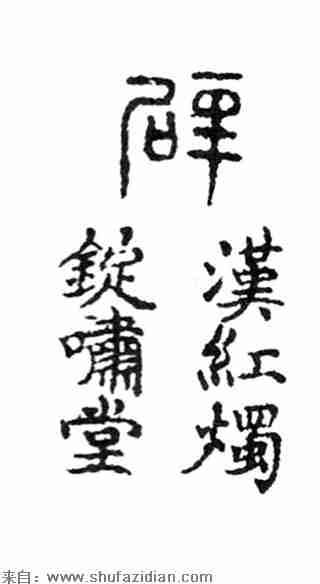 辟
漢紅燭
錠嘯堂
来自：www.shufazidian.com